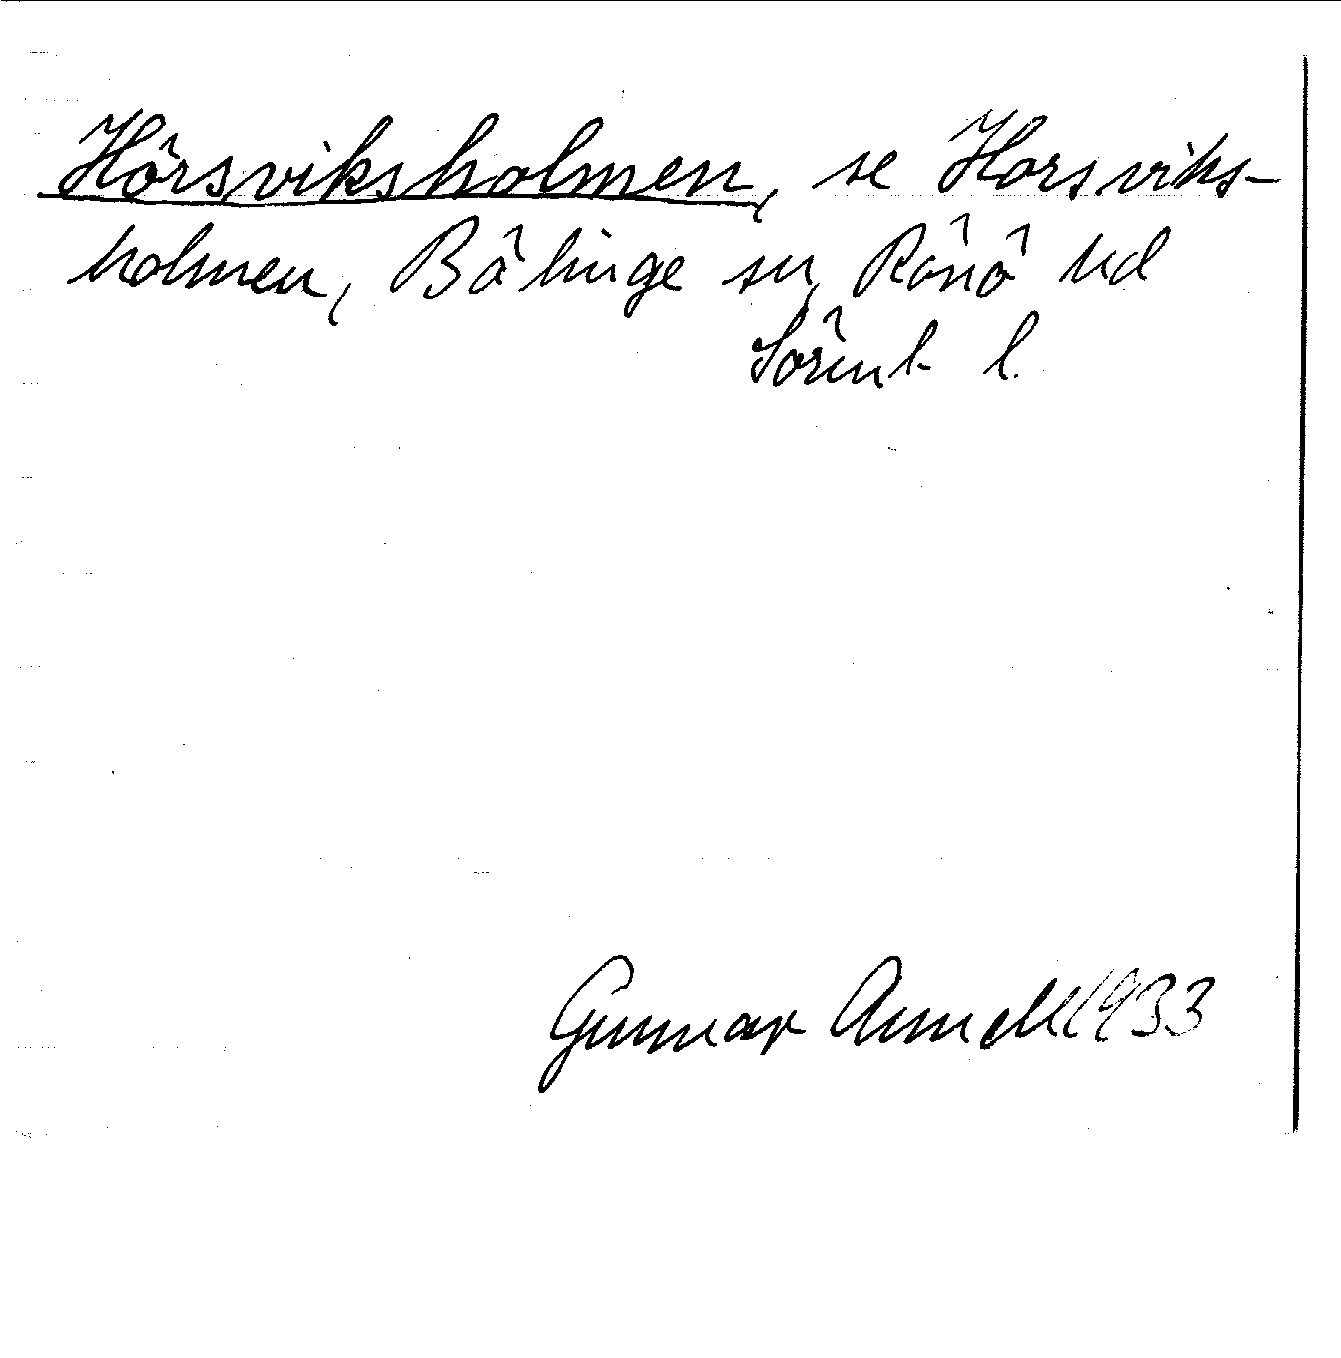 Hörsviksholmen, se Horsviks-
holmen, Bälinge sn, Rönö hd
Sörml. l.
Gunnar 1933